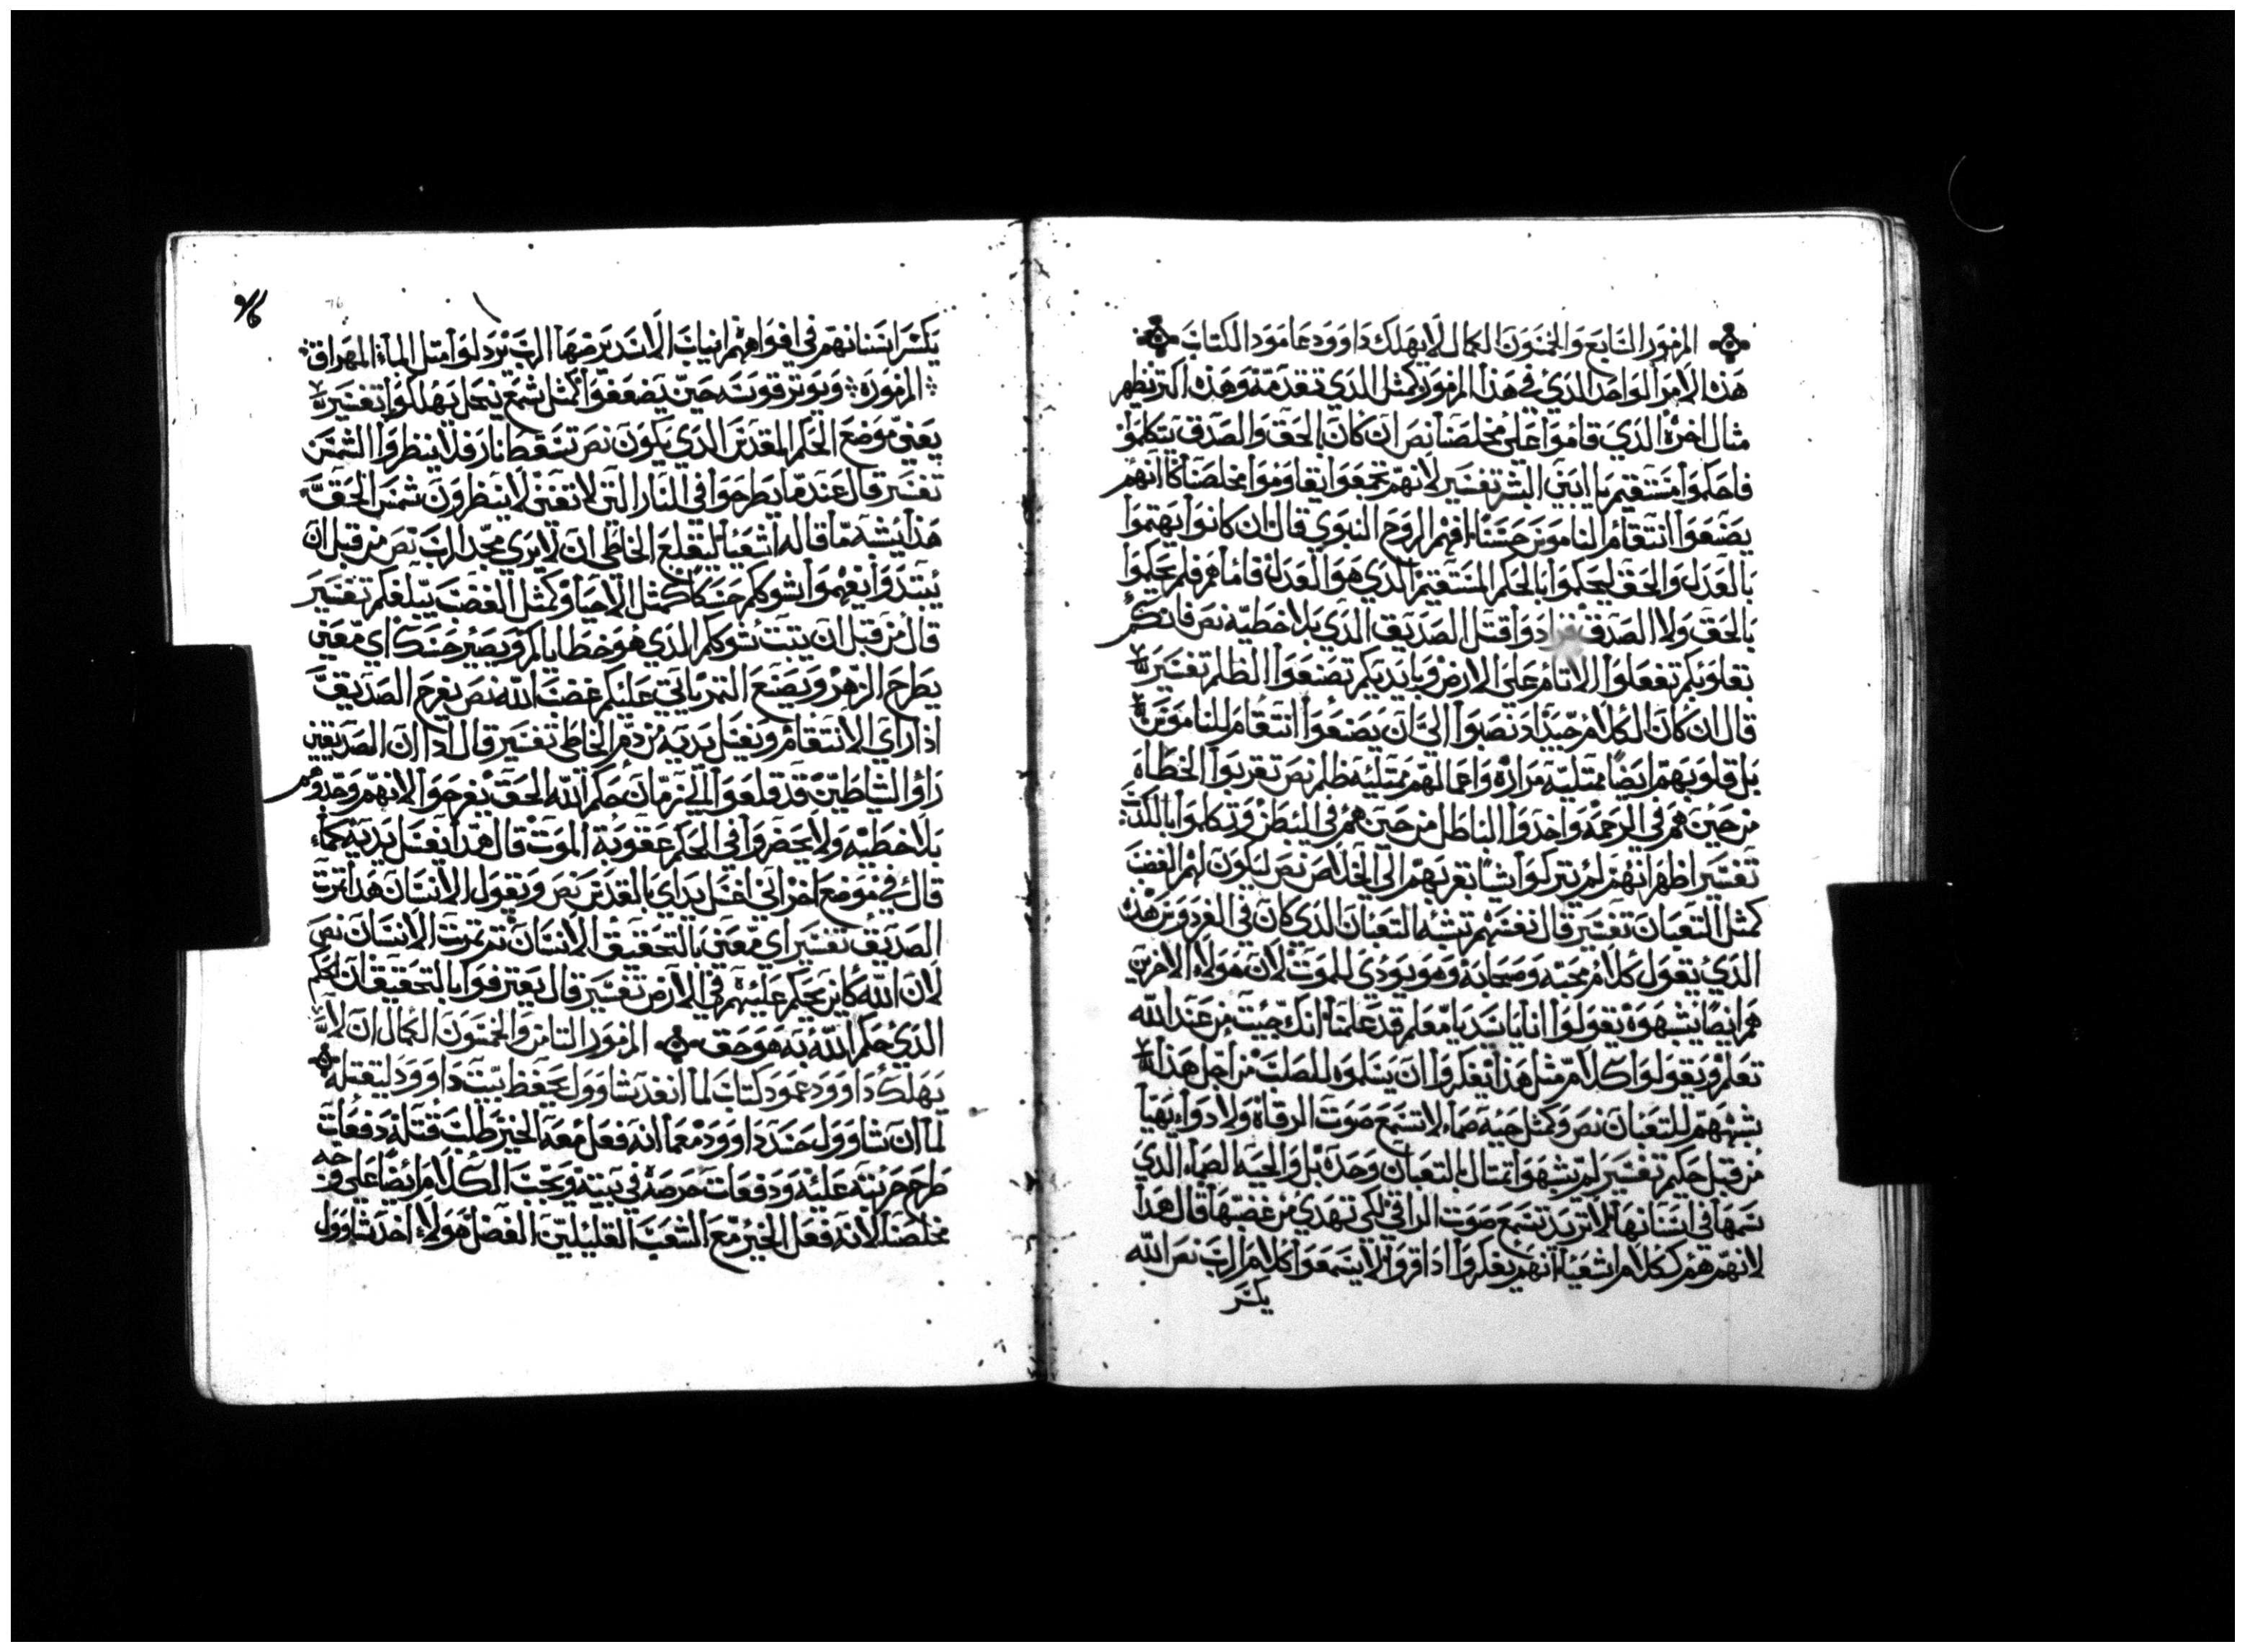 المزمور السابع والخمسون الكمال لا يهلك داوود عامود الكتاب
هذه الامر الواحد الذي في هذا المزمور كمثل الذي تقدمه وهذه اكثر تظهر
مثال اخره الذي قاموا على مخلصنا نص ان كان بالحق والصدق يتكلموا
فاحكموا مستقيم يا بني البشر تفسير لانهم تجمعوا يقاوموا مخلصنا كانهم
يصنعوا انتقام الناموس حسنا افهم الروح النبوي قال ان كانوا يهتموا
بالعدل والحق ليحكموا بالحكم المستقيم الذي هو العدل فاما هم فلم يحكموا
بالحق ولا الصدق بل ارادوا قتل الصديق الذي بلا خطيه نص فانكم
بقلوبكم تفعلوا الاثام على الارض وبايديكم تصنعوا الظلم تفسير
قال ان كان الكلام جيدا ونصبوا الى ان يصنعوا انتقام للناموس
بل قلوبهم ايضا ممتليه مراره واعمالهم ممتليه ظلم نص تغربوا الخطاه
من حين هم في الرحمه واخذوا الباطل من حين هم في البطن وتكلموا بالكذب
تفسير اظهر انهم لم يتركوا شيا يقربهم الى الخلاص نص ليكون لهم الغضب
كمثل الثعبان تفسير قال نفسهم تشبه الثعبان الذي كان في الفردوس هذه
الذي يقول كلام محبه وصحابه وهو يودي للموت لان هولاء الاخرين
هم ايضا بشهوة يقولوا انا يا سيد يا معلم قد علمنا انك جيت من عند الله
تعلم ويقولوا كلام مثل هذا يفكروا ان يسلموه للصلب من اجل هذا
شبههم للثعبان نص وكمثل حيه صماء لا تسمع صوت الرقاه ولا دواء يهيا
من قبل حكيم تفسير لم يشبهوا بمثال بالثعبان وحده بل والحيه الصماء الذي
سمها في اسنانها لا تريد تسمع صوت الراقي لكي تهدي من غضبها قال هذا
لانهم هم ككلام اشعيا انهم يفكروا اذا قروا لا يسمعوا كلام الرب نص الله
يكسر
76
يكسر اسنانهم في افواههم انياب الاسد يرضها الرب يرذلوا مثل الماء المهراق
المزموره ويوتر قوسه حين يضعفوا كمثل شمع ينحل يهلكوا تفسير
يعني موضع الحكم المقدس الذي يكون نص تسقط نار فلا ينظروا الشمس
تفسير قال عندما يطرحوا في النار التي لا تفنى لا ينظرون شمس الحق
هذا يشبه ما قاله اشعيا ليقلع الخاطي ان لا يرى مجد الرب نص من قبل ان
يبتدوا يفهموا شوككم حسكا كمثل الاحيا وكمثل الغضب يبلغكم تفسير
قال من قبل ان ينبت شوككم الذي هو خطاياكم ويصير حسكا اي معنى
يطرح الزهر ويصنع الثمر ياتي عليكم غضب الله نص يفرح الصديق
اذا راى الانتقام ويغسل يديه من دم الخاطي تفسير قال اذا ان الصديقين
راوا الشاطين قد قلعوا الى زمان حكم الله الحق يفرحوا لانهم وجدوهم
بلا خطيه ولا يحضروا في الحكم عقوبة الموت قال هذا يغسل يديه كما
قال في موضع اخر اني اغسل يداي بالقدس نص ويقول الانسان هذا ثمرت
الصديق تفسير اي معنى بالتحقيق الانسان ثم ثمرت الانسان نص
لان الله كاين يحكم عليهم في الارض تفسير قال يعترفوا بالتحقيق ان الحكم
الذي حكم الله به هو حق المزمور الثامن والخمسون الكمال ان لا
يهلك داوود عمود كتاب لما انفذ شاوول يحفظ بيت داوود ليقتله
لما ان شاوول حسد داوود مما انه فعل معه الخير طلب قتله دفعات
طرح حربته عليه ودفعات حرصه في بيته ويجب الكلام ايضا على وجه
مخلصنا لانه فعل الخير مع الشعب القليلين الفضل هولاء اخذ شاوول